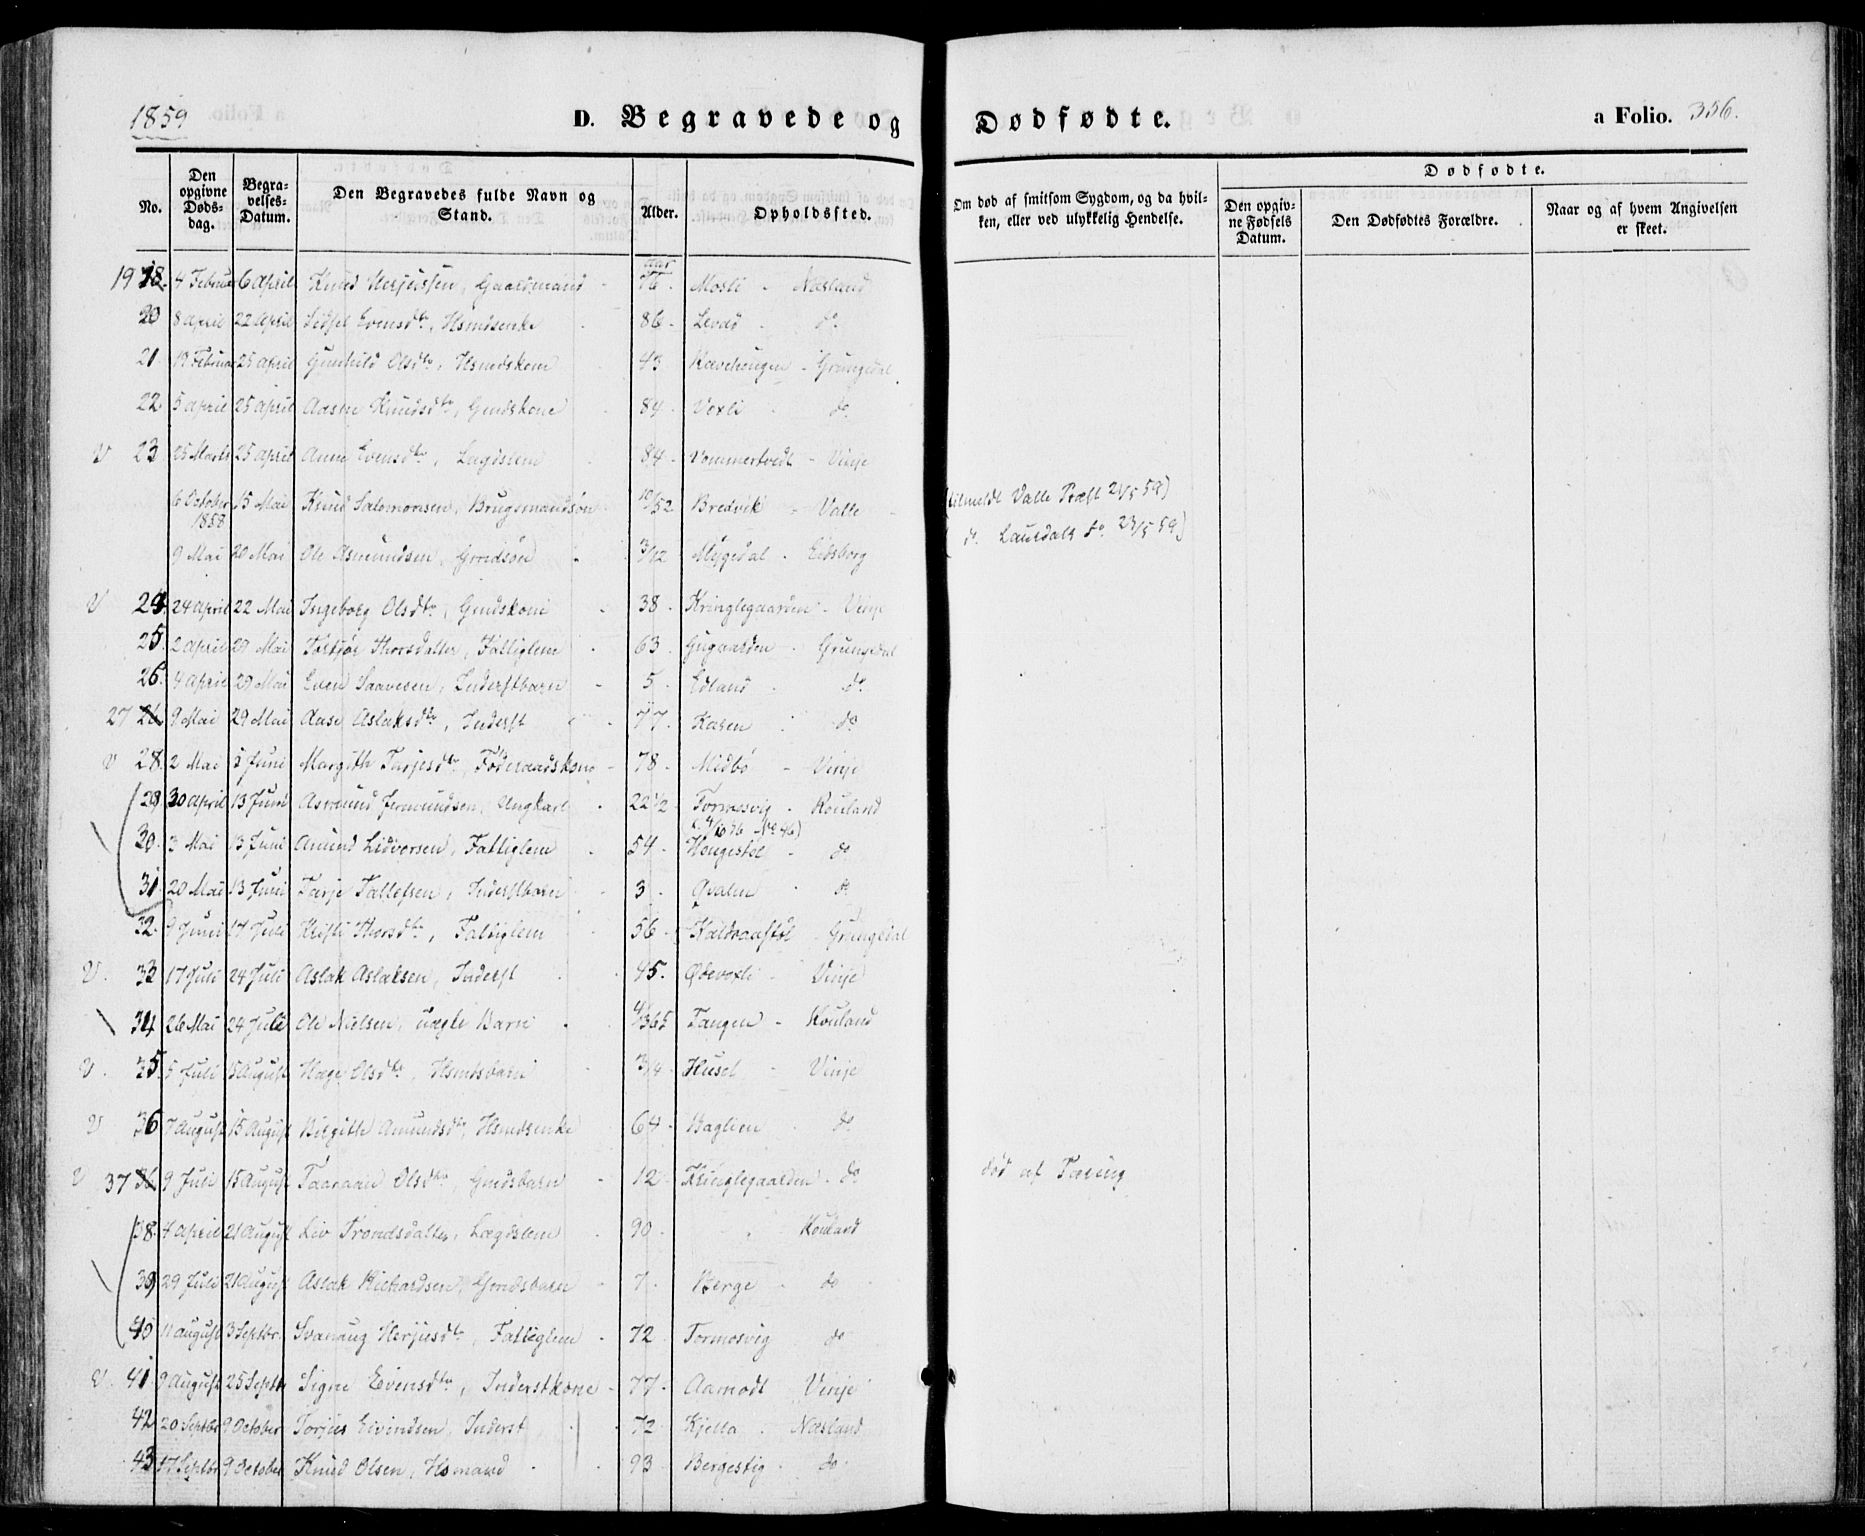 1859 D. Begravede og Dødfødte. a Folio. 356.
No. Den opgivne Døds-dag. Begra-velses-Datum. Den Begravedes fulde Navn og Stand. Alder. Opholdssted. Om død af smitsom Sygdom, og da hvil-ken, eller ved ulykkelig Hendelse. Dødfødte.
Den opgiv-ne Fødsels Datum. Den Dødfødtes Forældre. Naar og af hvem Angivelsen er skeet.
19 18. 4 Februar 6 April Knud Herjussen, Gaardmand - 76. Mosli - Næsland
20 8 April 22 April Sidsel Evensdtr, Hsmdsenke 86 - Levad do
21. 19 Februar 25 April Gunhild Olsdtr, Hsmdskone 43 Kævehougen - Grungedal
22. 5 April 25 April Aasne Knudsdtr, Gmdskone 84 - Voxli do
V 23 25 Marts 25 April Anne Evensdtr, Lægdslem 84 - Vommertvedt - Vinje
6 October 1858 15 Mai Knud Salomonsen, Brugsmandssøn 10/52 Bredvik - Valle (tilmeldt Valle Præst 21/5 59)
9 Mai 20 Mai Ole Asmundsen, Gmdsøn 3/12 Mygedal - Eidsborg (do Laurdals do 23/5 59)
V 24. 24 April 22 Mai Ingeborg Olsdtr, Gmdskone 38 - Kringlegaarden - Vinje
25. 2 April 29 Mai Torbjør Thorsdatter, Fattiglem 63 Gugaarden - Grungedal
26. 4 April 29 Mai Even Saavesen, Inderstbarn - 5 - Edland do
27 26 9 Mai 29 Mai Aase Aslaksdtr, Inderst 77. Kasen do
V 28. 2 Mai Juni Margith Tarjesdtr, Føderaadskone - 78 - Midbø - Vinje
29 30 April 13 Juni Asmund Jermundsen, Ungkarl 22 1/2 Tormosvig - Rouland
30. 3 Mai 13 Juni Amund Lidvorsen, Fattiglem 54 - Hougestøl - do
31. 20 Mai 13 Juni Tarje Tallefsen, Inderstbarn 3 - Qvalen do
32. 9 Juni 17 Juli Kristi Thorsdtr, Fattiglem 56 - Kældvaastøl - Grungedal
V. 33 17 Juli 24 Juli Aslak Aslaksen, Inderst 45. Øbevoxli - Vinje
34 26 Mai 24 Juli Ole Nielsen, uægte Barn 4/365 Tangen - Rouland
V. 35. 5 Juli 15 August Hæge Olsdtr, Hsmdsbarn 3/4 - Husel - Vinje
V 36 7 August 15 August Birgithe Amundsdtr, Hsmdsenke 64 - Baglien do
V 37 36 9 Juli 15 August Taaraan Olsdtr, Gmdsbarn - 12 - Kringlegaarden - do død af Tæring
38. 4 April 21 August Liv Trondsdatter, Lægdslem 90 - Rouland
39 29 Juli 21 August Aslak Richardsen, Gmdsbarn - 7 - Berge - do
40 11 August 3 Septbr. Svanaug Herjusdtr, Fattiglem - 72 - Tormosvig do
V. 41. 9 August 25 Septbr Signe Evensdtr, Inderstkone - 77 - Aamodt Vinje
42. 20 Septbr 9 October Torjus Eivindsen, Inderst 72 - Kjella - Næsland
43 17 Septbr 9 October Knud Olsen, Hsmand - 93 - Bergestig - do